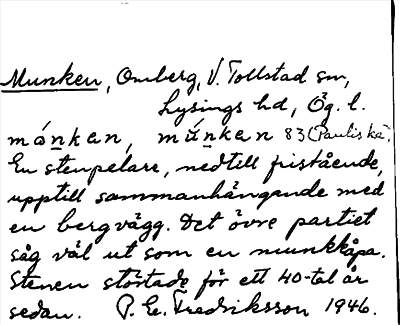 Munken, Omberg, V. Tollstad sn,
Lysings hd, Ög. l.
mónkan, múnken 83 (Pauliska)
En stenpelare, nedtill fristående,
upptill sammanhängende med
en bergvägg. Det övre partiet
såg väl ut som en munkkåpa.
Stenen störtade för ett 40-tal år
sedan. P. E. Fredriksson 1946.